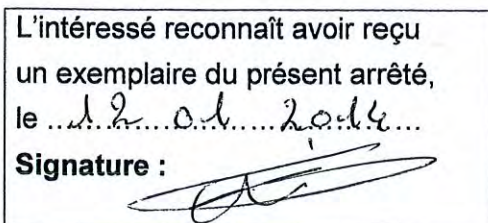 L'intéressé reconnaît avoir reçu
un exemplaire du présent arrêté,
le ...12.....01......2014...
Signature :